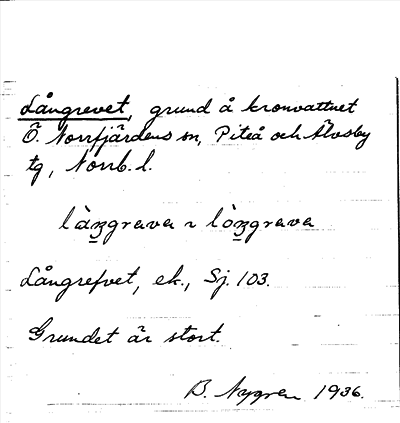 Långrevet, grund å kronvattnet
Ö. Norrfjärdens sn, Piteå och Älvsby
tg, Norrb. l.
làŋgrava ~ lòŋgrava
Långrefvet, ek., Sj. 103.
Grundet är stort.
B. Nygren 1936.